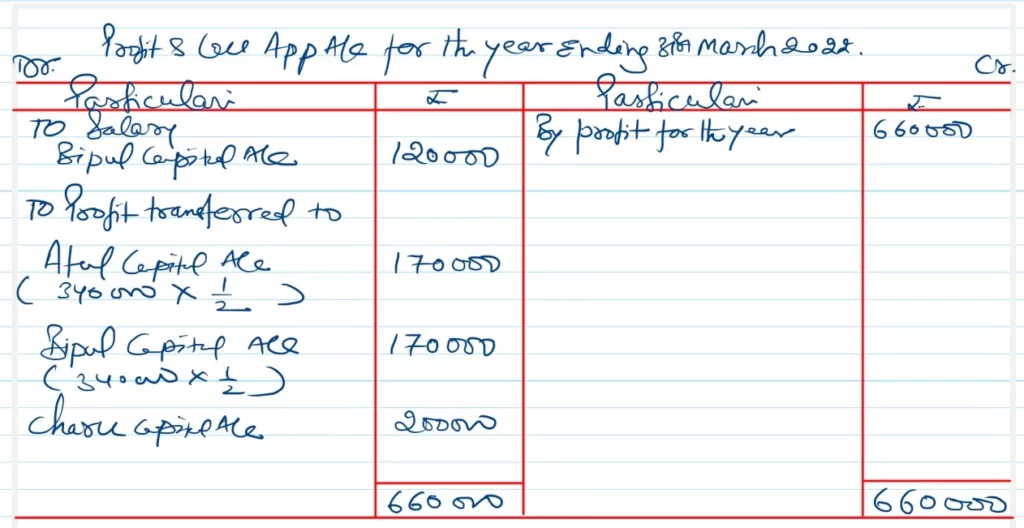 Profit & Loss App A/c for the year Ending 31st March 2022.
Dr. Cr.
Particulars ₹ Particulars ₹
To Salary By profit for the year 660000
Bipul Capital A/c 120000
To Profit transferred to
Atul Capital A/c 170000
( 340000 × 1/2 )
Bipul Capital A/c 170000
( 340000 × 1/2 )
Capital A/c 200000
660000 660000